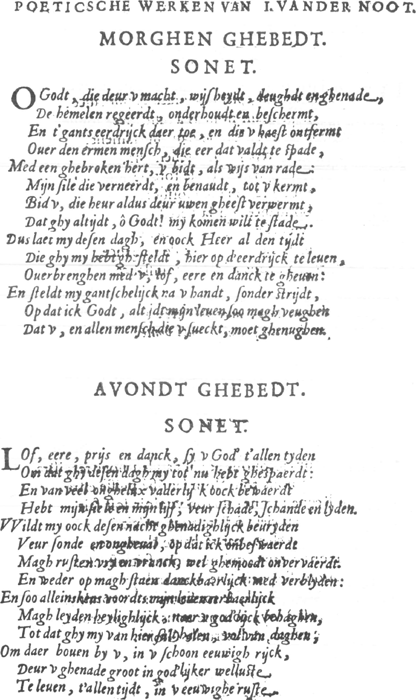 POETICSCHE WERKEN VAN I. VANDER NOOT.
MORGHEN GHEBEDT.
SONET.
O Godt, die deur v macht, wijsheydt, deughdt en ghenade,
De hemelen regeerdt, onderhoudt en beschermt,
En t'gants eerdrijck daer toe, en die v haest ontfermt
Ouer den ermen mensch, die eer dat valdt te spade,
Med een ghebroken hert, v bidt, als wijs van rade:
Mijn siele die verneerdt, en benaudt, tot v kermt,
Bid v, die heur aldus deur uwen gheest verwermt,
Dat ghy altijdt, ô Godt! my komen wilt te stade.
Dus laet my desen dagh, en oock Heer al den tijdt
Die ghy my hebt ghesteldt, hier op d'eerdrijck te leuen,
Ouerbrenghen med v, lof, eere en danck te gheuen:
En steldt my gantschelijck na v handt, sonder strijdt,
Op dat ick Godt, altijdt mijn leuen soo magh veughen
Dat v, en allen mensch die v sueckt, moet ghenughen.
AVONDT GHEBEDT.
SONET.
Lof, eere, prijs en danck, sy v God t'allen tyden
Om dat ghy desen dagh my tot nu hebt ghespaerdt:
En van veel onghelux vaderlijck oock bewaerdt
Hebt mijn siele en mijn lijf, veur schade, schande en lyden.
VVildt my oock desen nacht ghenadighlijck beuryden
Veur sonde en ongheual, op dat ick onbeswaerdt
Magh rusten vry en vranck, wel ghemoedt onververdt.
En weder op magh staen danckbaerlijck med verblyden:
En soo alleinskens voordts mijn leuen eerbaerlijck
Magh leyden heylighlijck, naer v goddlijck behaghen,
Tot dat ghy my van hier sult halen, vol van daghen,
Om daer bouen by v, in v schoon eeuwigh rijck,
Deur v ghenade groot in god'lijker welluste
Te leuen, t'allen tijdt, in v eeuwighe ruste.